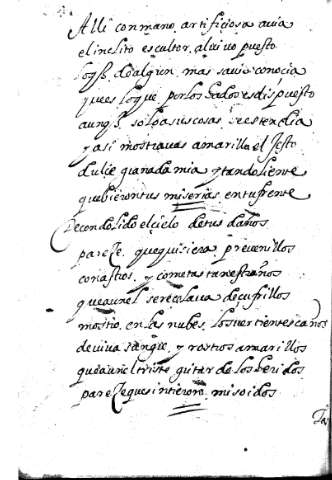 Alli con mano artificiosa avia
el inclito escultor, al vivo puesto
lo q̃ss. do algun mas savio conocia
que es lo que por los hados es dispuesto
aunq̃. solo a sus cosas se estendia
y asi mostrava amarillo el gesto
dulce granada mia y tan doliente
que bieron tus miserias en tu frente
Condolido el cielo de tus daños
pareçe que quisiera prevenillos
con astros, y cometas tan estraños
que aun el se recelava de cufrillos
mostro en las nubes, los vertientes caños
de viva sangre, y rostros amarillos
que aun el triste gritar de los heridos
pareçe que sintieron mis oidos.